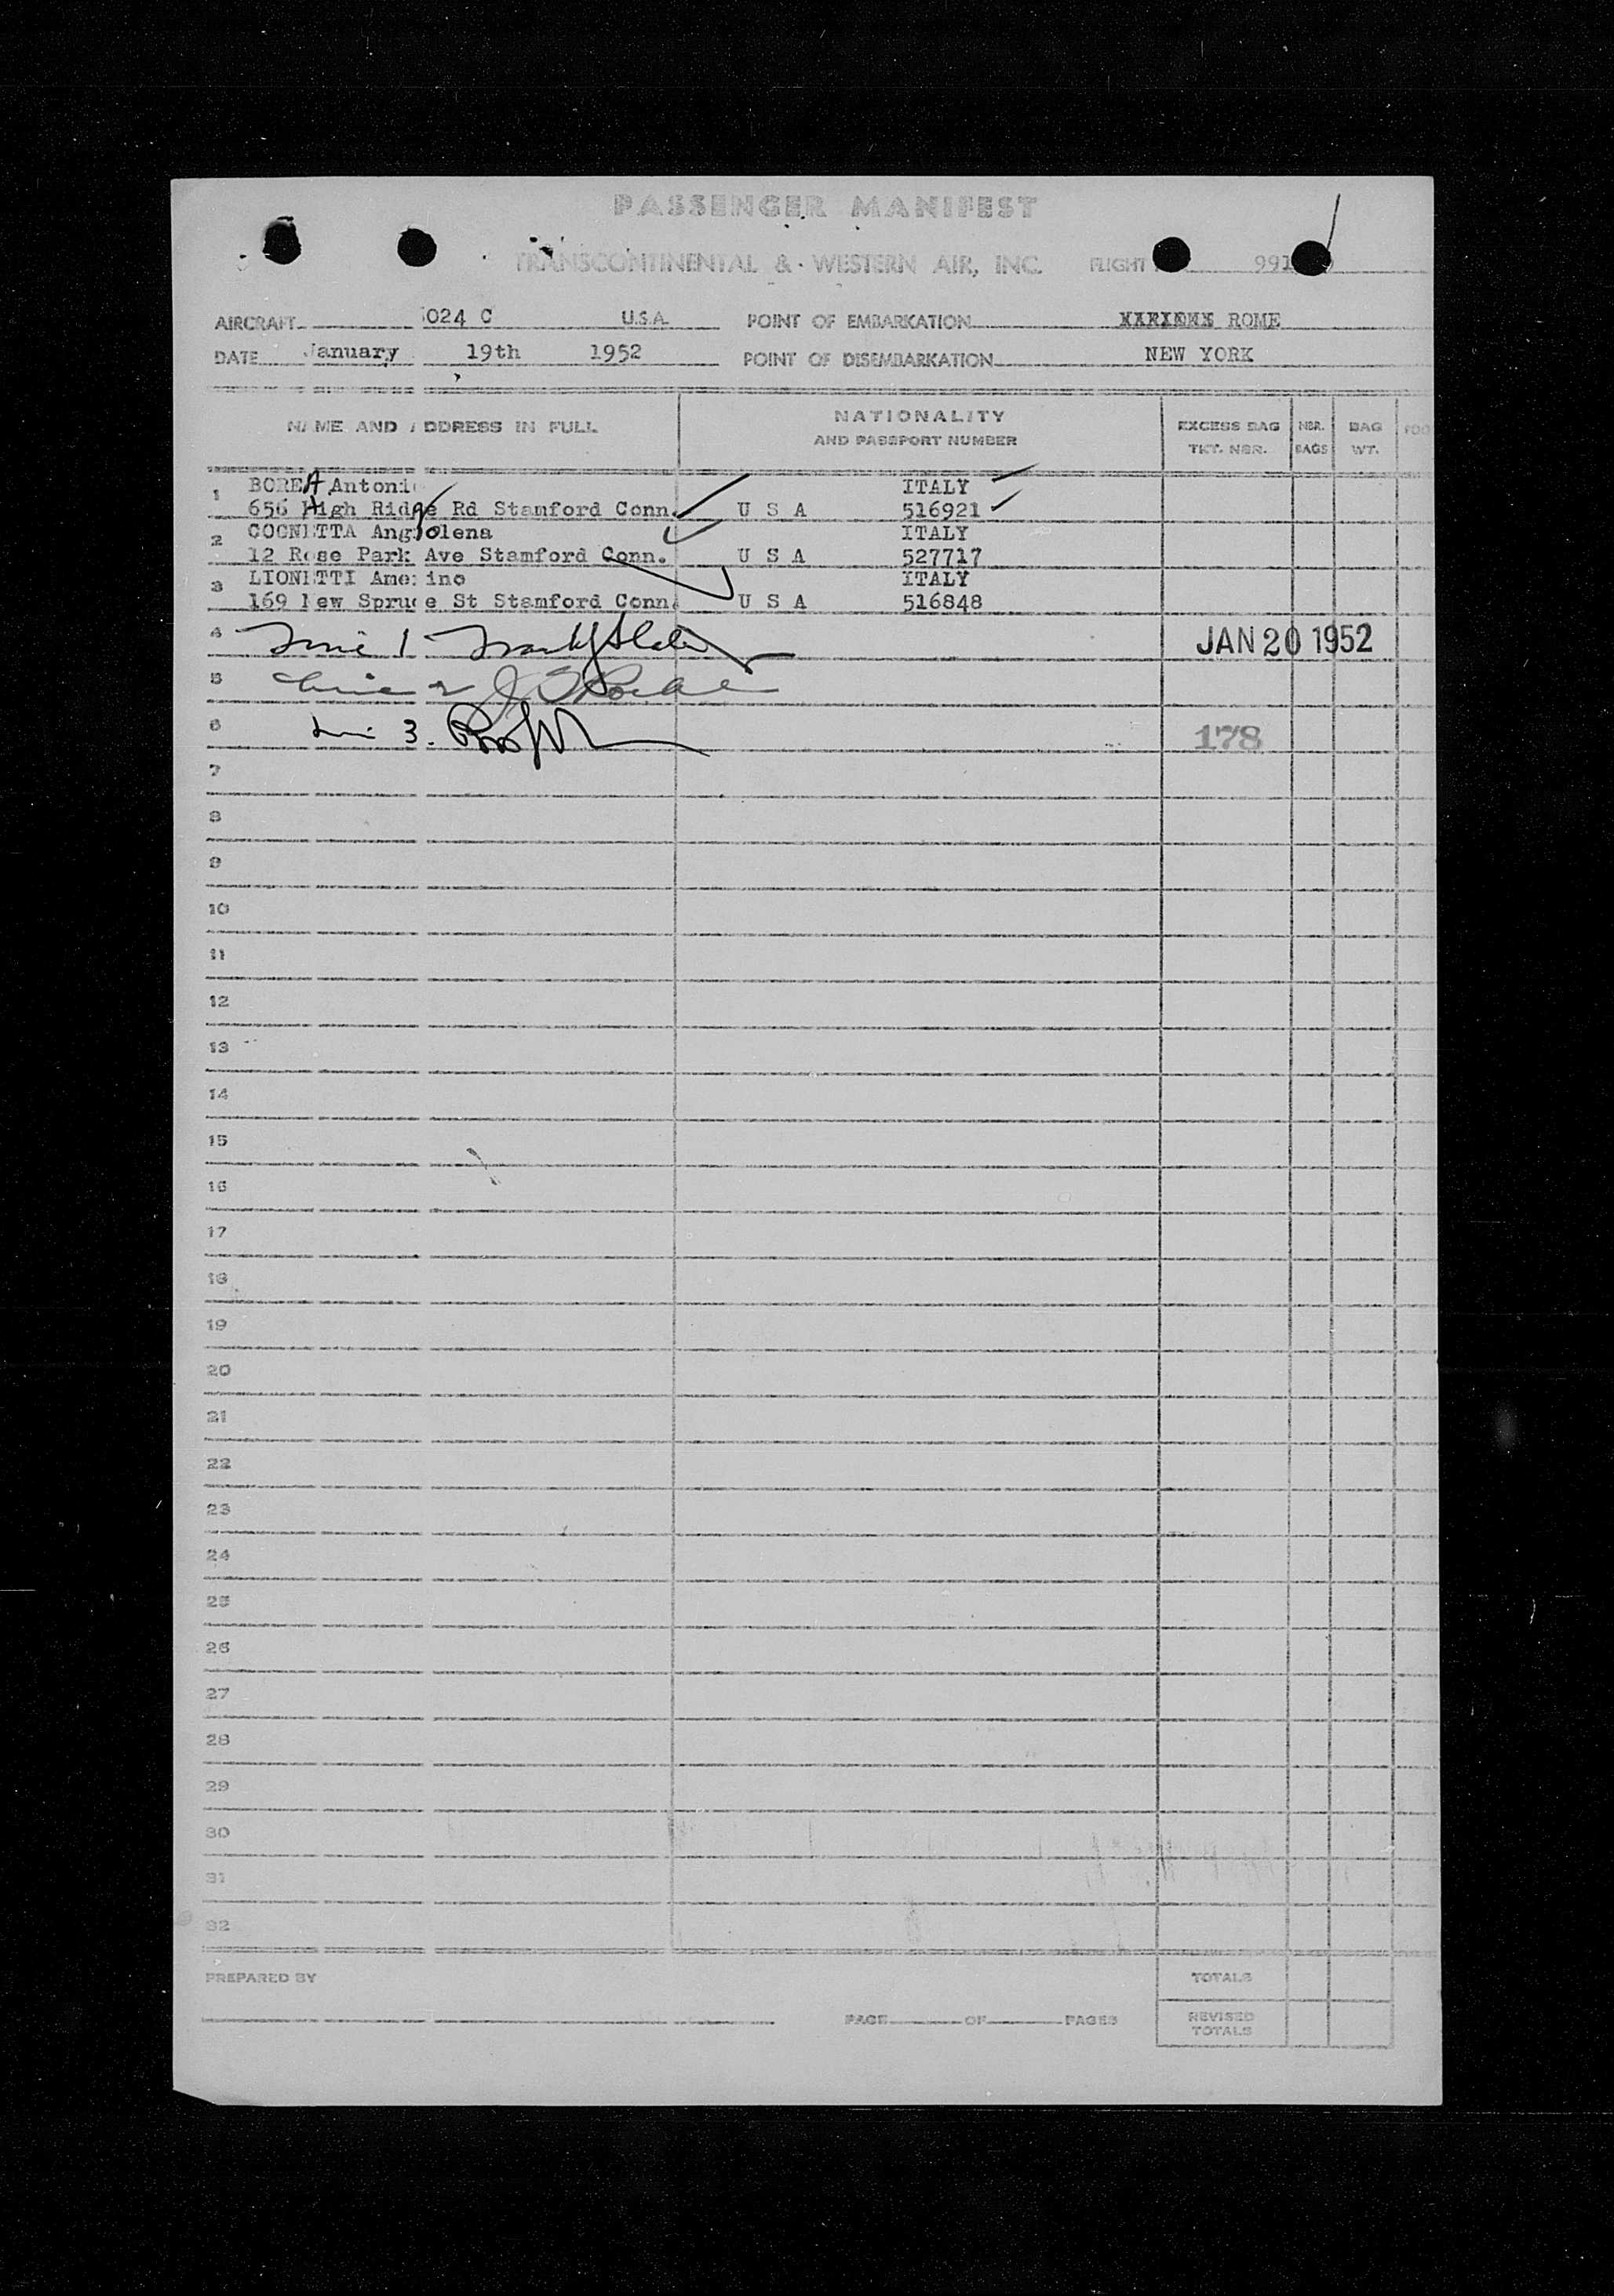 PASSENGER MANIFEST
TRANSCONTINENTAL & WESTERN AIR, INC. FLIGHT 991
AIRCRAFT 024 C U.S.A. POINT OF EMBARKATION ROME
DATE January 19th 1952 POINT OF DISEMBARKATION NEW YORK
NAME AND ADDRESS IN FULL NATIONALITY AND PASSPORT NUMBER EXCESS BAG TKT. NBR. NBR. BAGS BAG WT.
1 BOREA Antoni ITALY
656 High Ridge Rd Stamford Conn. U S A 516921
2 COGNETTA Angiolena ITALY
12 Rose Park Ave Stamford Conn. U S A 527717
3 LIONETTI Amerino ITALY
169 New Spruce St Stamford Conn. U S A 516848
4 JAN 20 1952
5
6 3. 178
7
8
9
10
11
12
13
14
15
16
17
18
19
20
21
22
23
24
25
26
27
28
29
30
31
32
PREPARED BY TOTALS
PAGE OF PAGES REVISED TOTALS